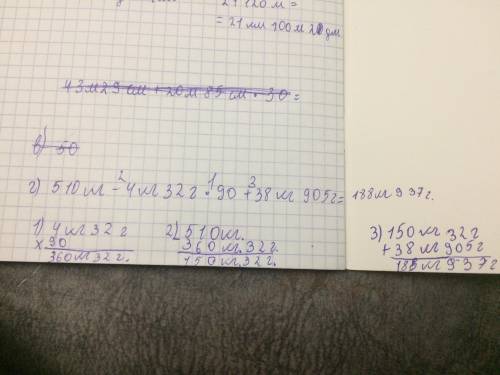 21 120 м =
= 21 км 100 м 20 дм
43 м 29 см + 20 м 85 см · 30 =
в) 50
2 1 3
г) 510 кг - 4 кг 32 г · 90 + 38 кг 905 г = 188 кг 937 г.
1) 4 кг 32 г
x 90
360 кг 32 г.
2) 510 кг.
- 360 кг. 32 г.
150 кг. 32 г.
3) 150 кг 32 г
+ 38 кг 905 г
188 кг 937 г